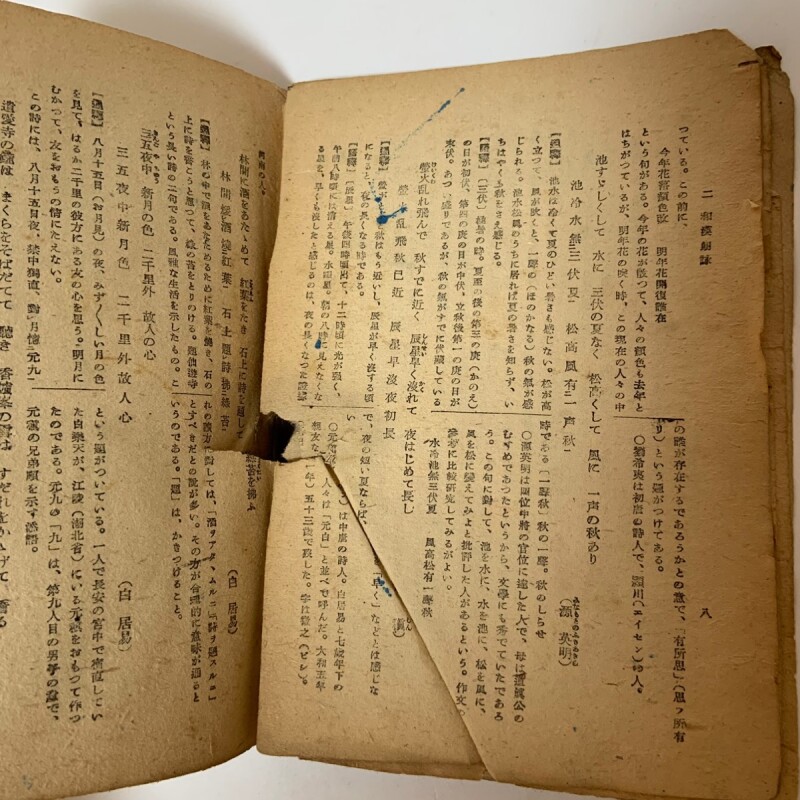 二 和漢朗詠
八
つている。この前に、
今年花落顔色改 明年花開復誰在
という句がある。今年の花が散つて、人々の顔色も去年と
はちがつているが、明年花の咲く時、この現在の人々の中
の誰が存在するであろうかとの意で、「有所思」(思フ所有
リ)という題がつけてある。
○劉希夷は初唐の詩人で、潁川(エイセン)の人。
池すずしくして 水に 三伏の夏なく 松高くして 風に 一声の秋あり
池冷水無三伏夏 松高風有一声秋
(源 英明)
【通釋】 池水は冷くて夏のひどい暑さも感じない。松が高
く立つて、風が吹くと、一聲の(ほのかなる)秋の氣が感
じられる。池水松風のうちに居れば夏の暑さを知らず、い
ちはやく秋をさえ感じる。
【語釋】 (三伏)極暑の時。夏至の後の第三の庚(かのえ)
の日が初伏、第四の庚の日が中伏、立秋後第一の庚の日が
末伏。あつい盛りであるが、秋の氣がすでに伏藏している
時である(一聲秋)秋の一聲。秋のしらせ
○源英明は四位中將の官位に達した人で、母は道眞公の
むすめであつたというから、文學にも秀でていたであろ
う。この句に對して、池を水に、水を池に、松を風に、
風を松に變えてみよと批評した人があるという。作文の
參考に比較研究してみるがよい。
水冷池無三伏夏 風高松有一聲秋
螢火乱れ飛んで 秋すでに近く 辰星早く沒れて 夜はじめて長し
螢火乱飛秋已近 辰星早沒夜初長
秋はもう近いし、辰星が早く沒する頃
になると、夜の長くなる時である。
【語釋】 (辰星)午後四時頃出て、十二時頃に光が强く、
午前八時頃には消える星。水曜星。朝の八時に見えなくな
る星を、早くも沒したと感じるのは、夜の長くなつた證據
で、夜の短い夏ならば、
「早く」などとは感じな
い
は中唐の詩人。白居易と七歳年下の
人々は「元白」と並べて呼んだ。大和五年
五十三歳で歿した。字は微之(ビシ)。
林間に酒をあたためて 紅葉をたき 石上に詩を題して 緑苔を拂ふ
林間煖酒燒紅葉 石上題詩拂緑苔
(白 居易)
【通釋】 林の中で酒をあたためるために紅葉を燒き、石の
上に詩を書こうと思つて、緑の苔をとりのける。遊仙遊寺
という長い詩の二句である。風雅な生活を示したもの。こ
れ
に對しては、「酒ヲアタタムルニ」「詩ヲ題スルニ」
とすべきだとの説が多い。その方が合理的に意味が通ると
いうのである。「題」は、かきつけること。
三五夜中 新月の色 二千里外 故人の心
三五夜中新月色 二千里外故人心
(白 居易)
【通釋】 八月十五日(お月見)の夜、みずみずしい月の色
を見て、はるか二千里の彼方にある友の心を思う。明月に
むかつて、友をおもうの情にたえない。
この時には、八月十五日夜、禁中獨直、對月憶元九
という題がついている。一人で長安の宮中で宿直してい
た白樂天が、江陵(湖北省)にいる元稹をおもつて作つ
たのである。元九の「九」は、第九人目の男子の意で、
元稹の兄弟順を示す法語。
遺愛寺の鐘は まくらをそばだてて 聽き 香爐峯の雪は すだれをかかげて 看る